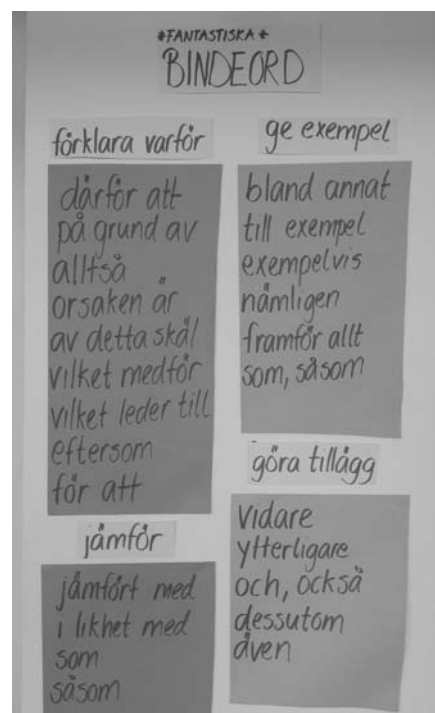 *FANTASTISKA*
BINDEORD
förklara varför
därför att
på grund av
alltså
orsaken är
av detta skäl
vilket medför
vilket leder till
eftersom
för att
jämför
jämfört med
i likhet med
som
såsom
ge exempel
bland annat
till exempel
exempelvis
nämligen
framför allt
som, såsom
göra tillägg
vidare
ytterligare
och, också
dessutom
även